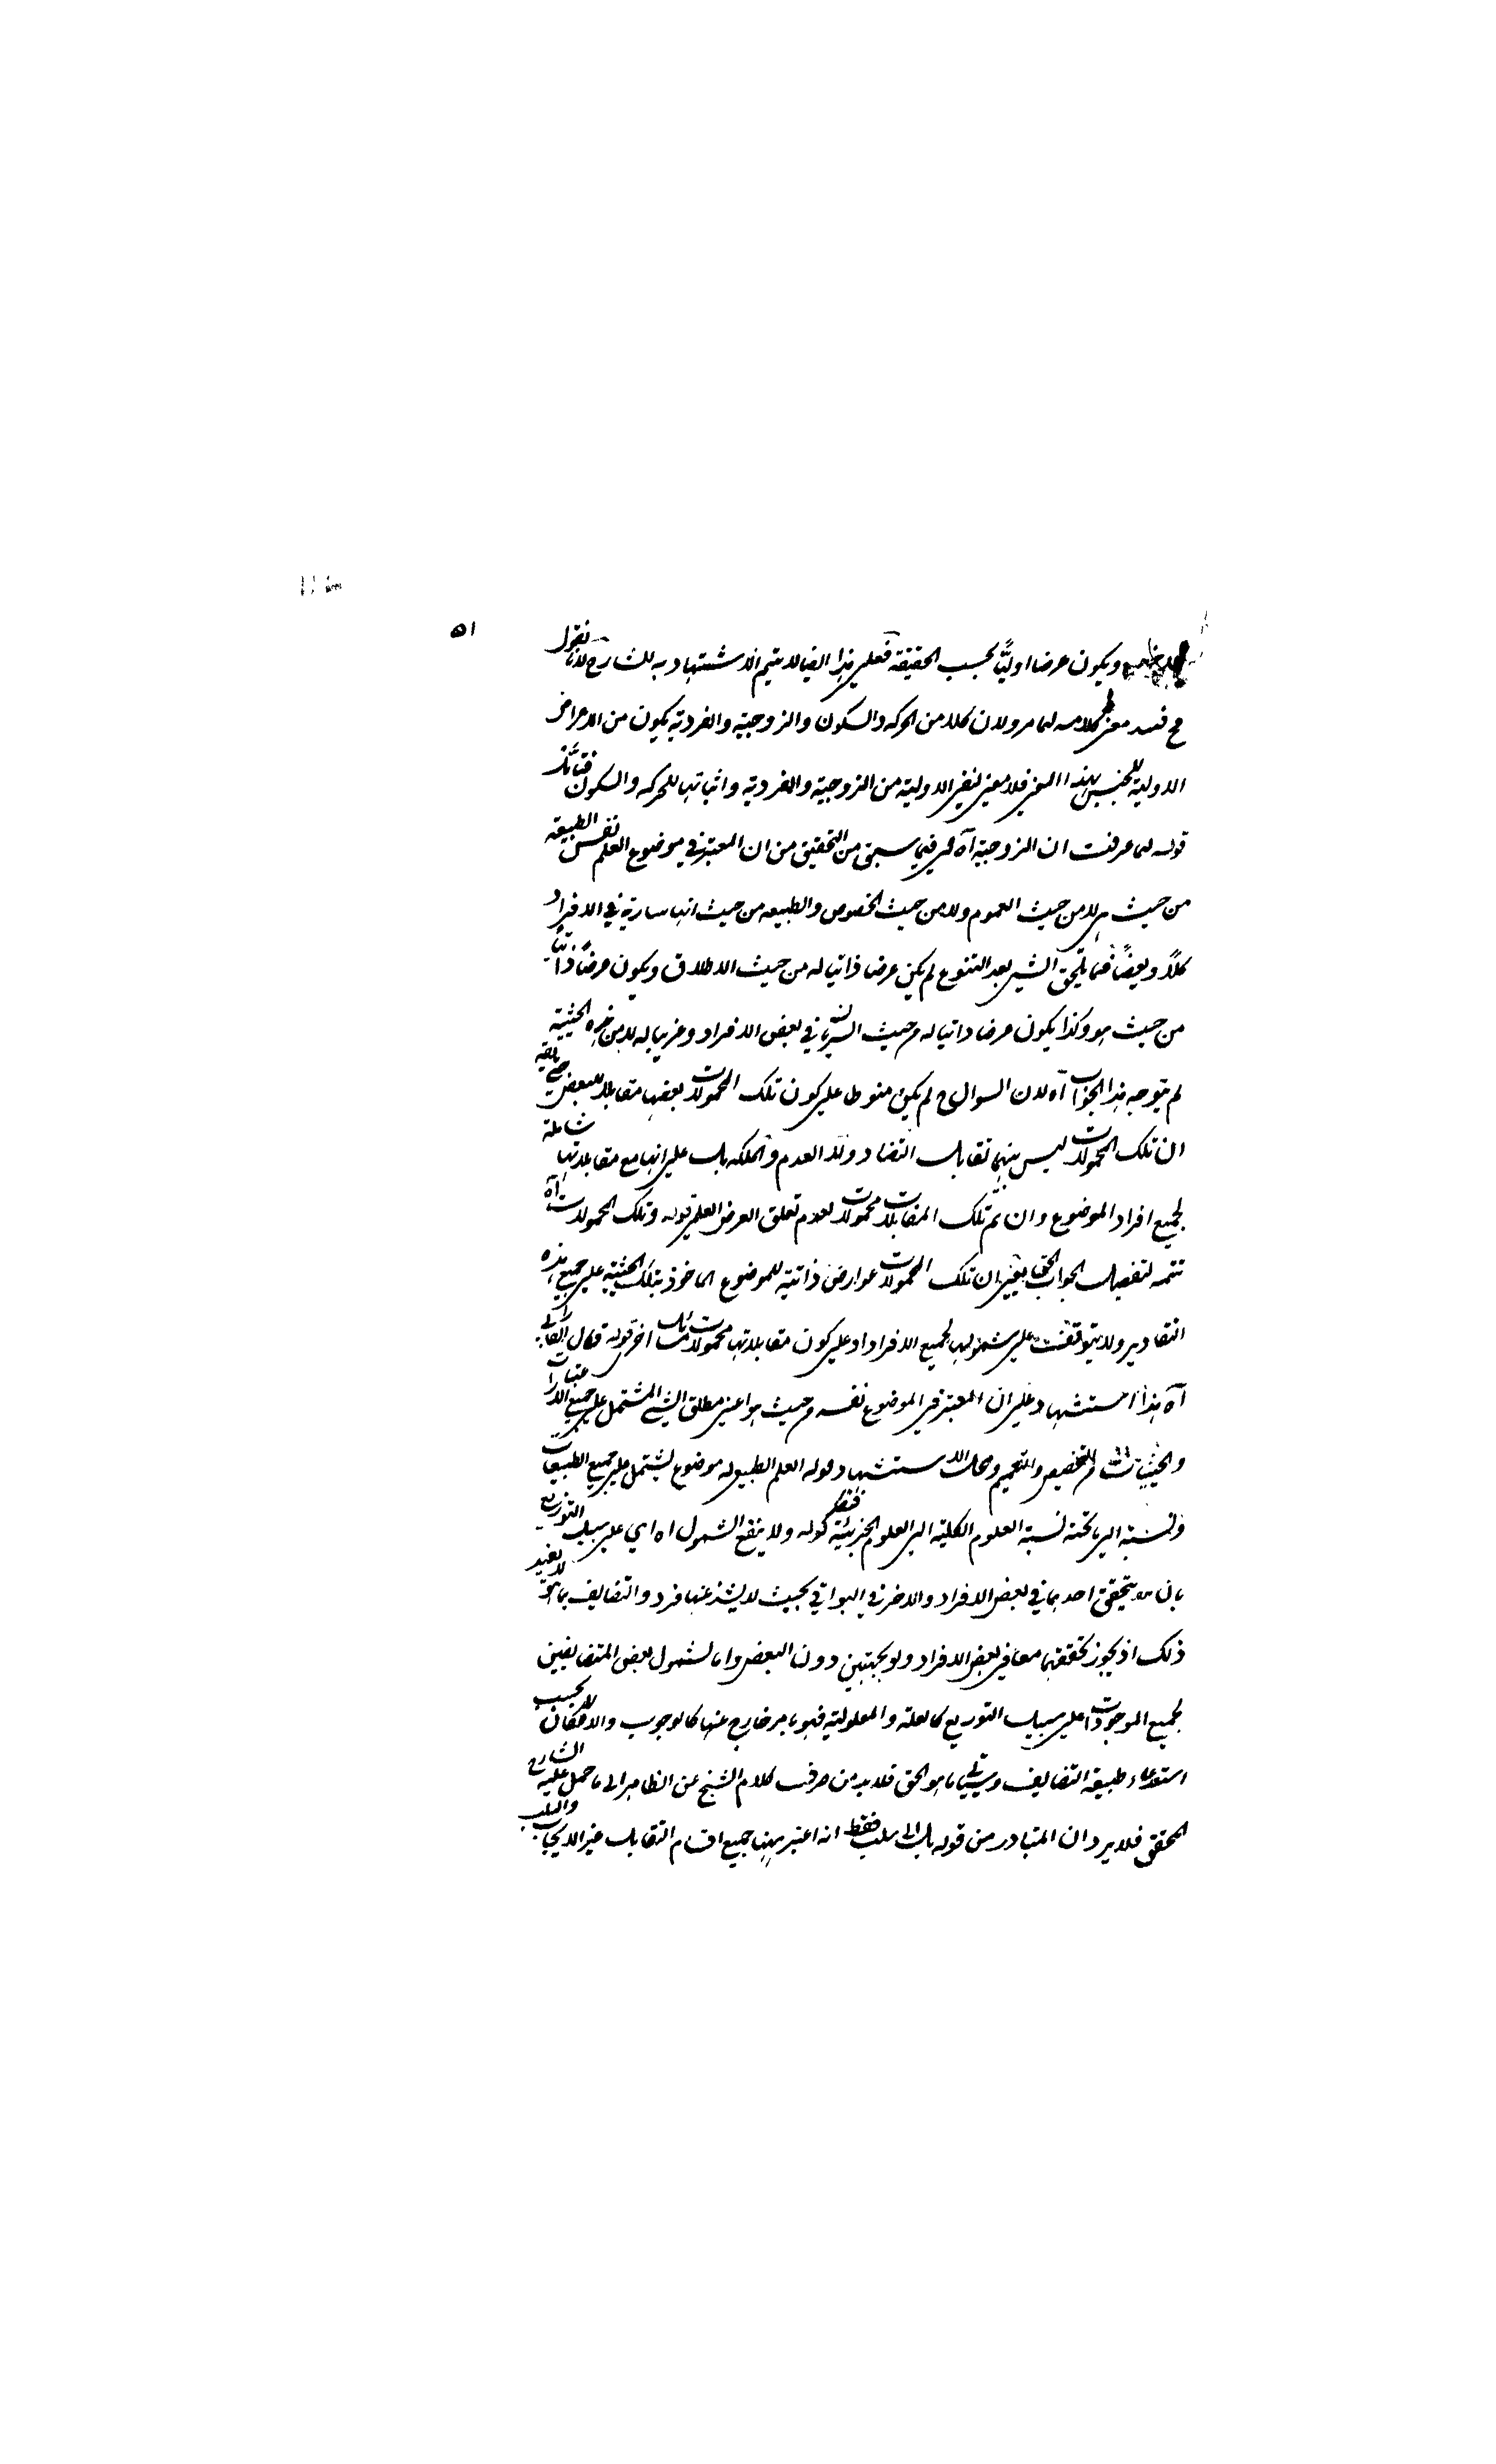 ٥١
ويكون عرضا اوليًّا بحسب الحقيقة فعلى هذا ايضا لا يتم الاستشهاد به للشارح لانا نقول
ح فسد معنى كلامه لما مر ولان كلا من الحركه والسكون والزوجية والفردية يكون من الاعراض
الاولية للجنس بهذا المعنى فلا معنى لنفى الاولية من الزوجية والفردية واثباتها للحركه والسكون فتأمل
قوله لما عرفت ان الزوجية آه فيما سبق من التحقيق من ان المعتبر فى موضوع العلم نفس الطبيعه
من حيث هى لا من حيث العموم ولا من حيث الخصوص والطبيعه من حيث انها سارية فى الافراد
كلاً وبعضاً فما يلحق الشى بعد التنوع لم يكن عرضا ذاتيا له من حيث الاطلاق ويكون عرضاً ذاتياً
من حيث هو وكذا يكون عرضا ذاتيا له من حيث السريان فى بعض الافراد وغريبا له لا من هذه الحيثية
لم يتوجه هذا الجواب آه لان السوال ح لم يكن منوطا على كون تلك المحمولات بعضها مقابلا للبعض
ان تلك المحمولات ليس بينها تقابل التضاد ولا العدم والملكه بل على انها مع مقابلاتها شاملة
لجميع افراد الموضوع وان ثم تلك المقابلات محمولات لعدم تعلق الغرض العلمى قوله وتلك المحمولات آه
تتمه لتفصيل الجواب الحق يعنى ان تلك المحمولات عوارض ذاتية للموضوع الماخوذ بتلك الحيثية على جميع هذه
التقادير ولا يتوقف على شمولها لجميع الافراد او على كون مقابلاتها محمولات مسائل اخر قوله قال الفارابى
آه هذا استشهاد على ان المعتبر فى الموضوع نفسه من حيث هو اعنى مطلق الشى المشتمل على جميع الاعتبارات
والحيثيات من التخصيص والتعميم ومحل الاستشهاد قوله العلم الطبيعى له موضوع يشتمل على جميع الطبيعيات
ونسبته الى ما تحته نسبة العلوم الكلية الى العلوم الجزئية فقط قوله ولا ينفع الشمول اه اى على سبيل التوزيع
بان يتحقق احدهما فى بعض الافراد والاخر فى البواقى بحيث لا يشذ عنها فرد والتضايف بما هو لا يفيد
ذلك اذ يجوز تحققهما معا فى بعض الافراد ولو بجهتين دون البعض واما شمول بعض المتضايفين
لجميع الموجودات على سبيل التوزيع كالعلة والمعلولية فهو بامر خارج عنها كالوجوب والامكان لا بحسب
استدعاء طبيعة التضايف وسياتى ما هو الحق فلا بد من صرف كلام الشيخ عن الظاهر الى ما حمل عليه الشارح
المحقق فلا يرد ان المتبادر من قوله بل الى سلب فقط انه اعتبر ههنا جميع اقسام التقابل غير الايجاب والسلب